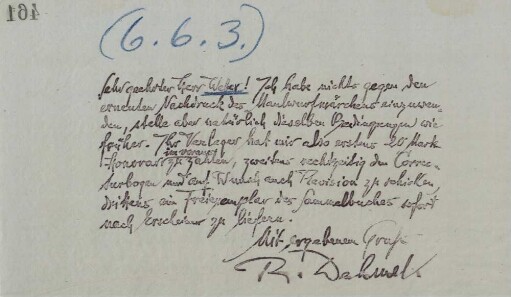 461
(6.6.3.)
Sehr geehrter Herr Weber! Ich habe nichts gegen den
erneuten Nachdruck des Maulwurfmärchens einzuwen-
den, stelle aber natürlich dieselben Bedingungen wie
früher. Ihr Verleger hat mir also erstens 20 Mark
im voraus
Honorar zu zahlen, zweitens rechtzeitig den Correc-
turbogen und auf Wunsch auch Revision zu schicken,
drittens ein Freiexemplar des Sammelbuches sofort
nach Erscheinen zu liefern.
Mit ergebenem Gruß
R. Dehmel.